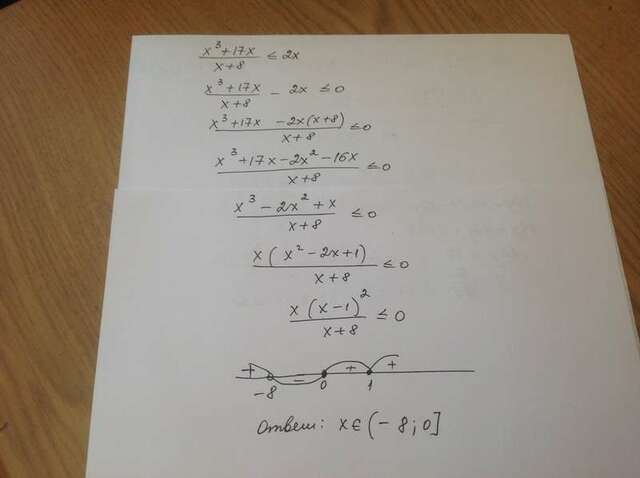 (x³+17x)/(x+8) ≤ 2x
(x³+17x)/(x+8) − 2x ≤ 0
(x³+17x −2x(x+8))/(x+8) ≤ 0
(x³+17x−2x²−16x)/(x+8) ≤ 0
(x³−2x²+x)/(x+8) ≤ 0
x(x²−2x+1)/(x+8) ≤ 0
x(x−1)²/(x+8) ≤ 0
+ − + +
−8 0 1
Ответ: x∈(−8;0]